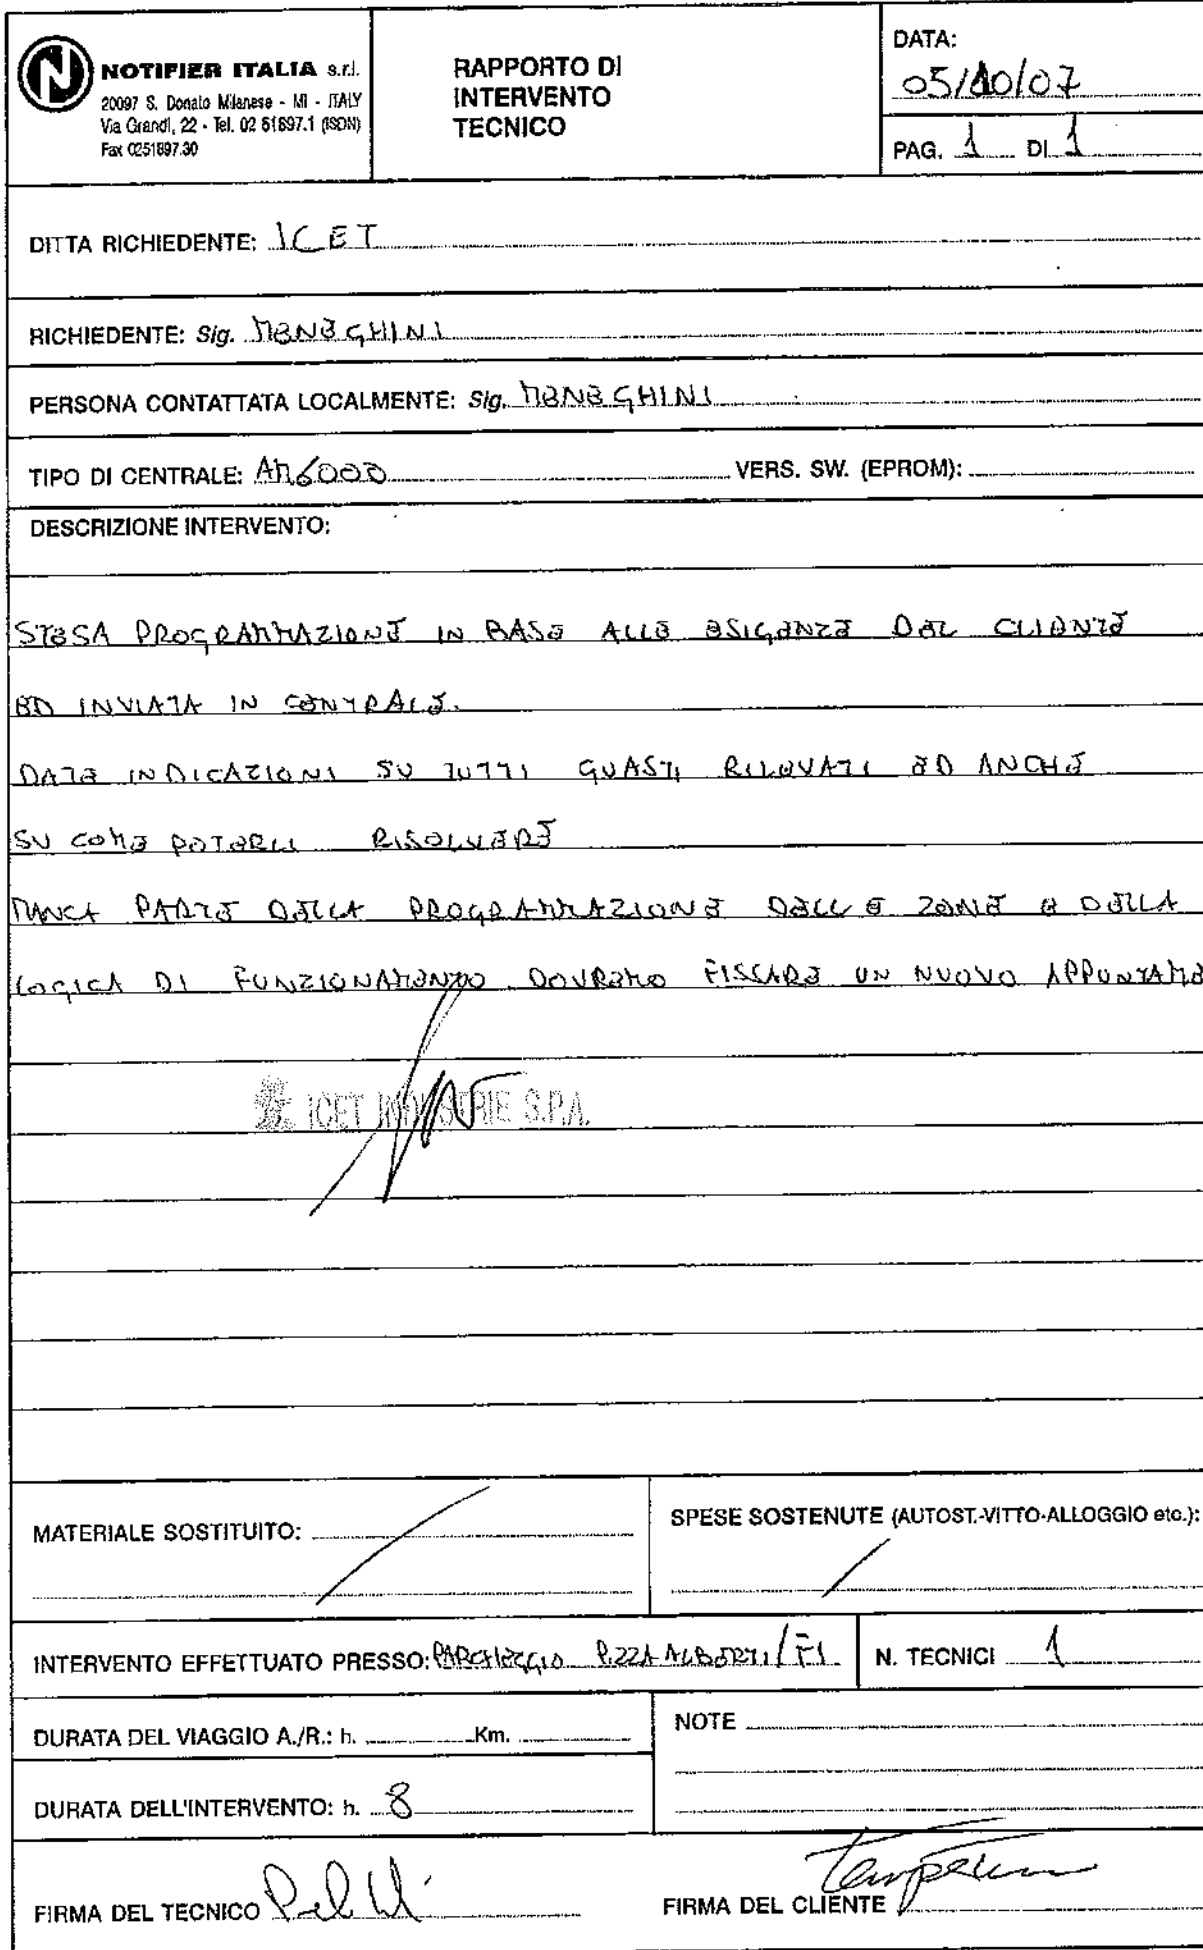 NOTIFIER ITALIA s.r.l.
20097 S. Donato Milanese - MI - ITALY
Via Grandi, 22 - Tel. 02 51897.1 (ISDN)
Fax 0251897.30
RAPPORTO DI
INTERVENTO
TECNICO
DATA:
05/10/07
PAG. 1 DI 1
DITTA RICHIEDENTE: ICET
RICHIEDENTE: Sig. MENEGHINI
PERSONA CONTATTATA LOCALMENTE: Sig. MENEGHINI
TIPO DI CENTRALE: AM6000 VERS. SW. (EPROM):
DESCRIZIONE INTERVENTO:
STESA PROGRAMMAZIONE IN BASE ALLE ESIGENZE DEL CLIENTE
ED INVIATA IN CENTRALE.
DATE INDICAZIONI SU TUTTI GUASTI RILEVATI ED ANCHE
SU COME POTERLI RISOLVERE
MANCA PARTE DELLA PROGRAMMAZIONE DELLE ZONE E DELLA
LOGICA DI FUNZIONAMENTO DOVREMO FISSARE UN NUOVO APPUNTAME
ICET INDUSTRIE S.P.A.
MATERIALE SOSTITUITO:
SPESE SOSTENUTE (AUTOST.-VITTO-ALLOGGIO etc.):
INTERVENTO EFFETTUATO PRESSO: PARCHEGGIO P.ZZA ALBERTI / FI
N. TECNICI 1
DURATA DEL VIAGGIO A./R.: h. Km.
NOTE
DURATA DELL'INTERVENTO: h. 8
FIRMA DEL TECNICO
FIRMA DEL CLIENTE